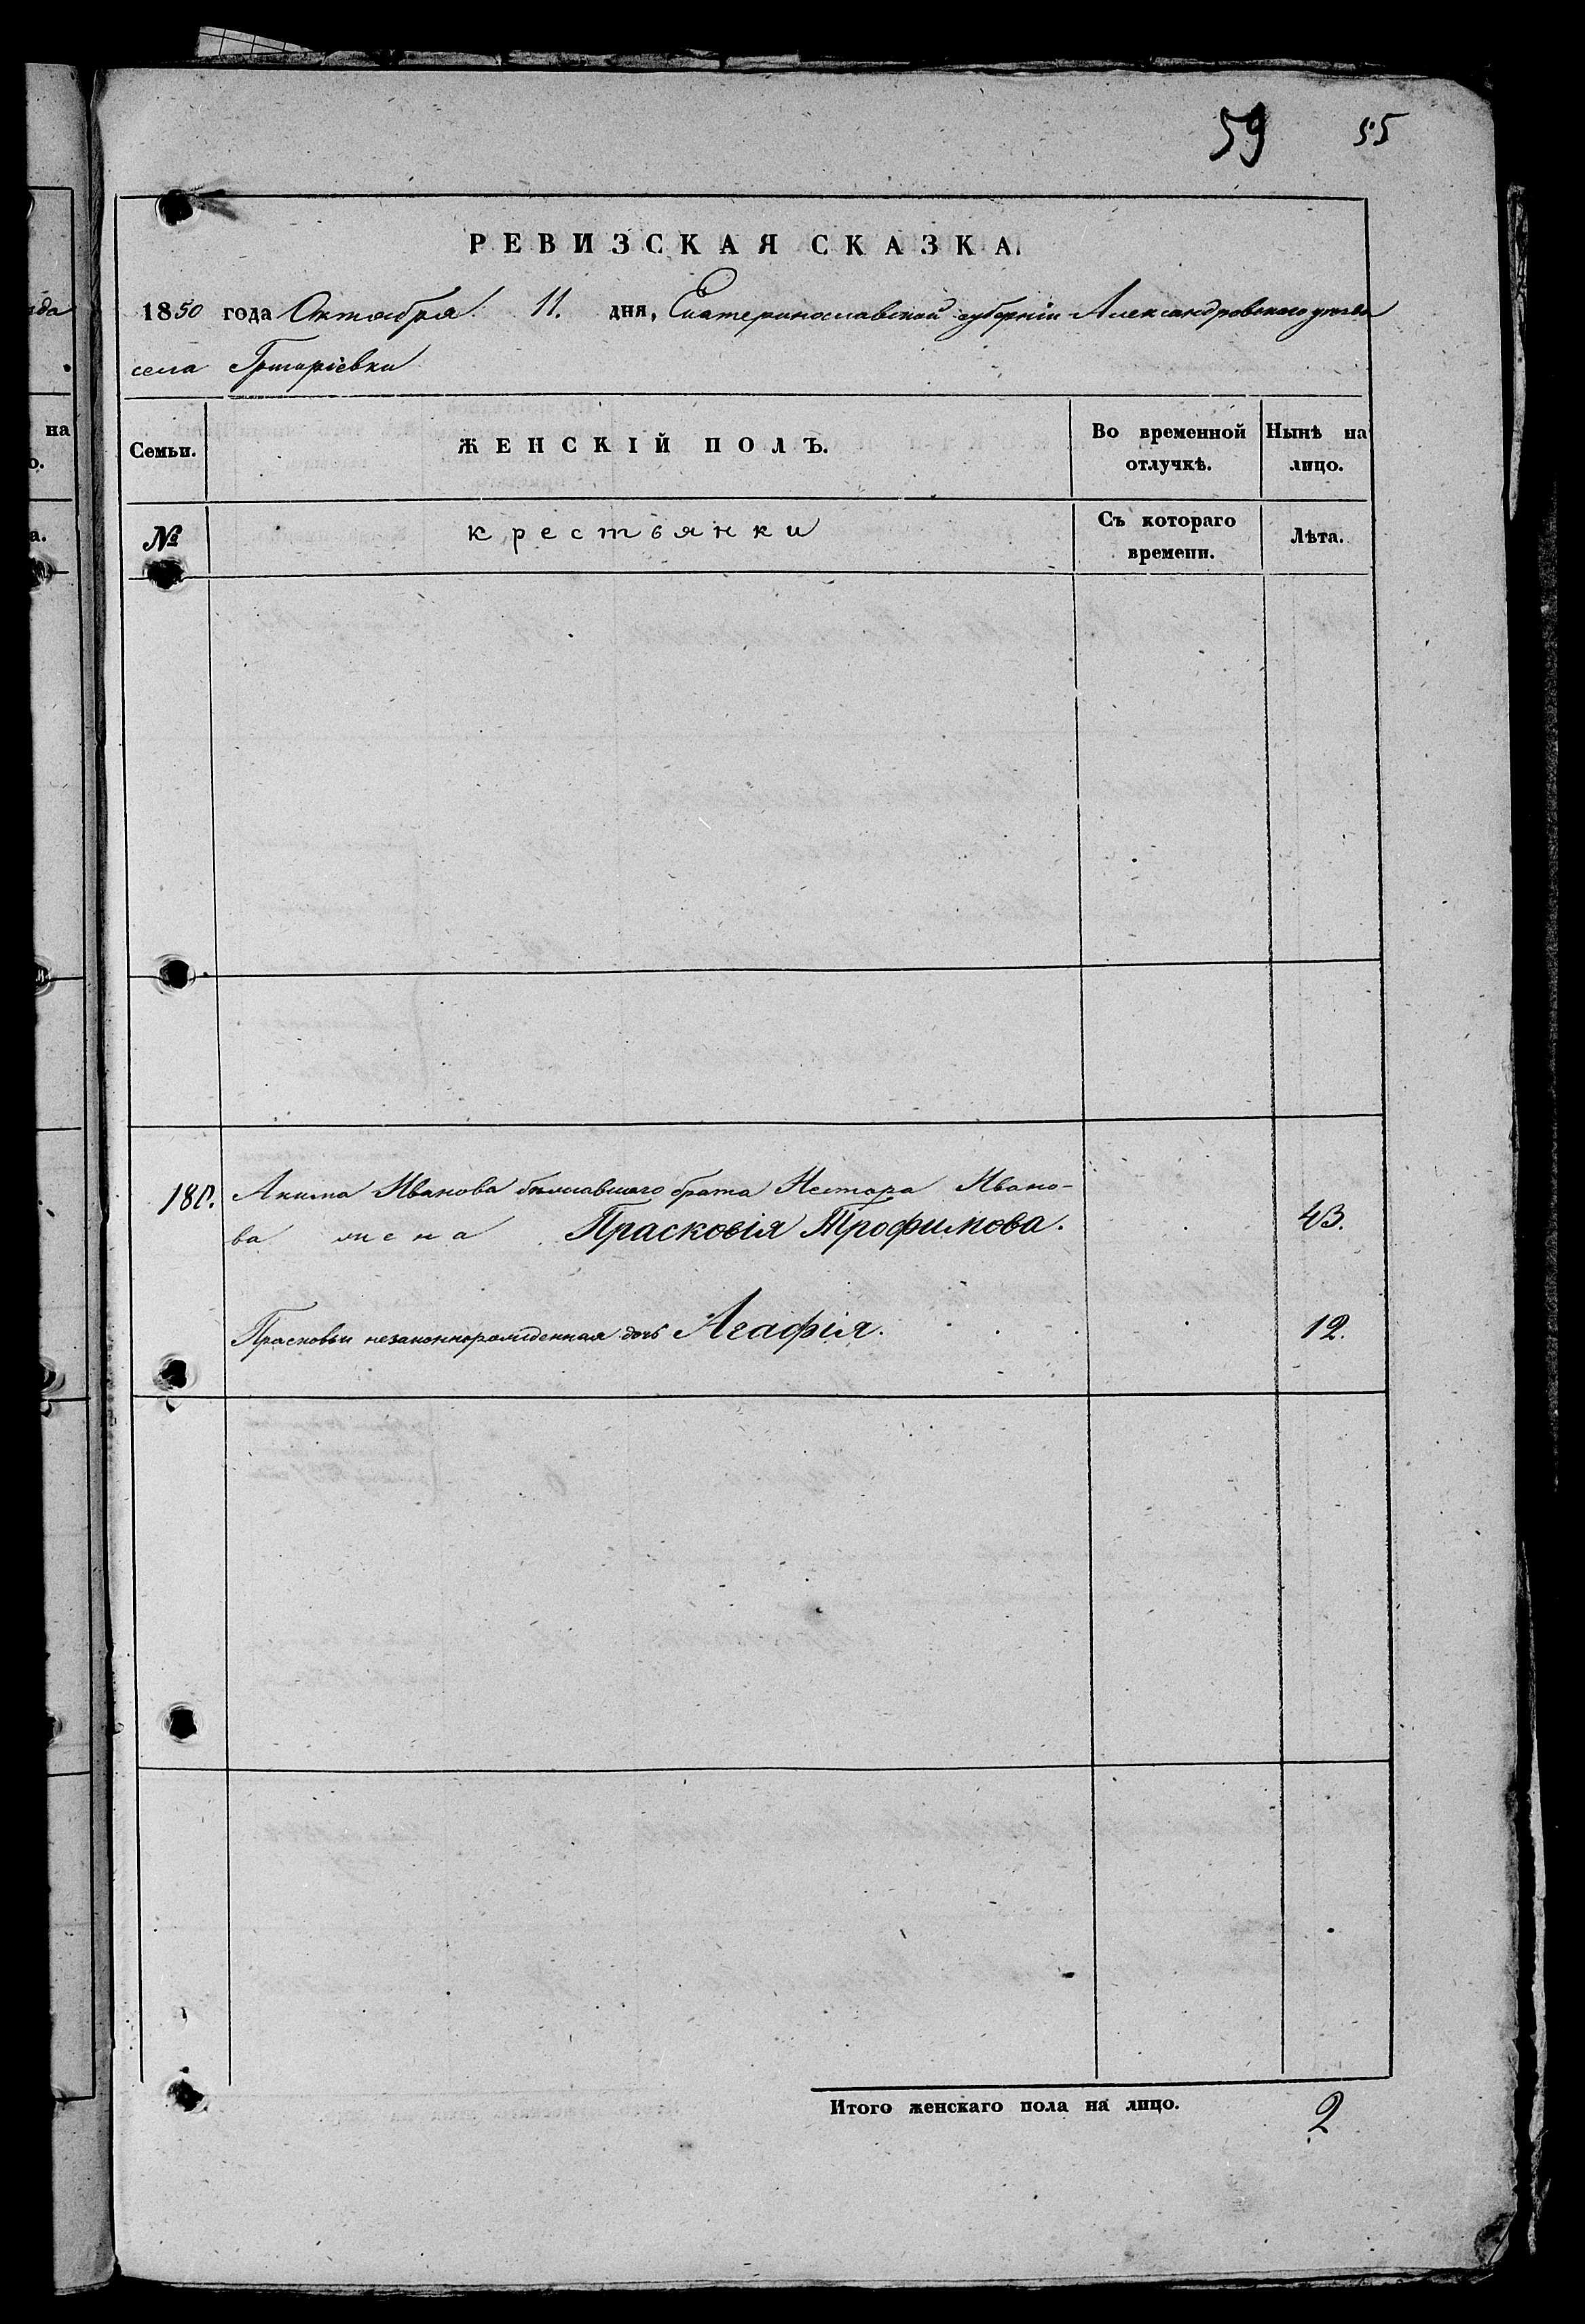 59 55
РЕВИЗСКАЯ СКАЗКА.
1850 года Октября 11. дня, Екатеринославской губерніи Александровского уезда
села Григоріевки
Семьи.
ЖЕНСКІЙ ПОЛЪ.
Во временной отлучкѣ.
Нынѣ на лицо.
№
крестьянки
Съ котораго времени.
Лѣта.
Акима Иванова бежавшаго брата Нестора Ивано-
ва жена Прасковія Трофимова. 43.
Прасковьи незаконнорожденная дочь Агафія. 12.
Итого женскаго пола на лицо. 2
на
а.